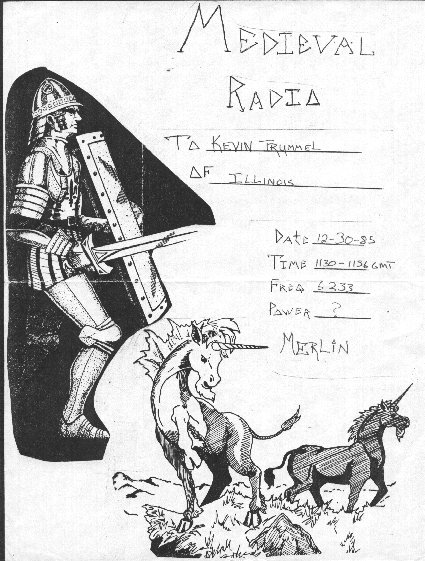 MEDIEVAL
RADIO
TO KEVIN TRUMMEL
OF ILLINOIS
DATE 12-30-85
TIME 1130-1136 GMT
FREQ 6233
POWER ?
MERLIN